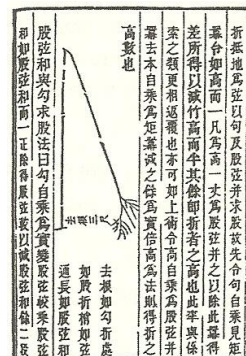 折抵地為弦以句及股弦并求股故先令句自乘見矩
冪令如高而一凡為高一丈為股弦并之以除此冪得
差所得以減竹高而半其餘即折者之高也此率與係
索之類更相返覆也亦可如上術令高自乘為股弦并
冪去本自乘為矩冪減之餘為實倍高為法則得折之
高數也
去本三尺
去根如勾折處
如股折稍如弦
通長如股弦和
股弦和與勾求股法曰勾自乘為實變股弦較乘股弦
和如股弦和而一正除得股弦較以減股弦和餘二段